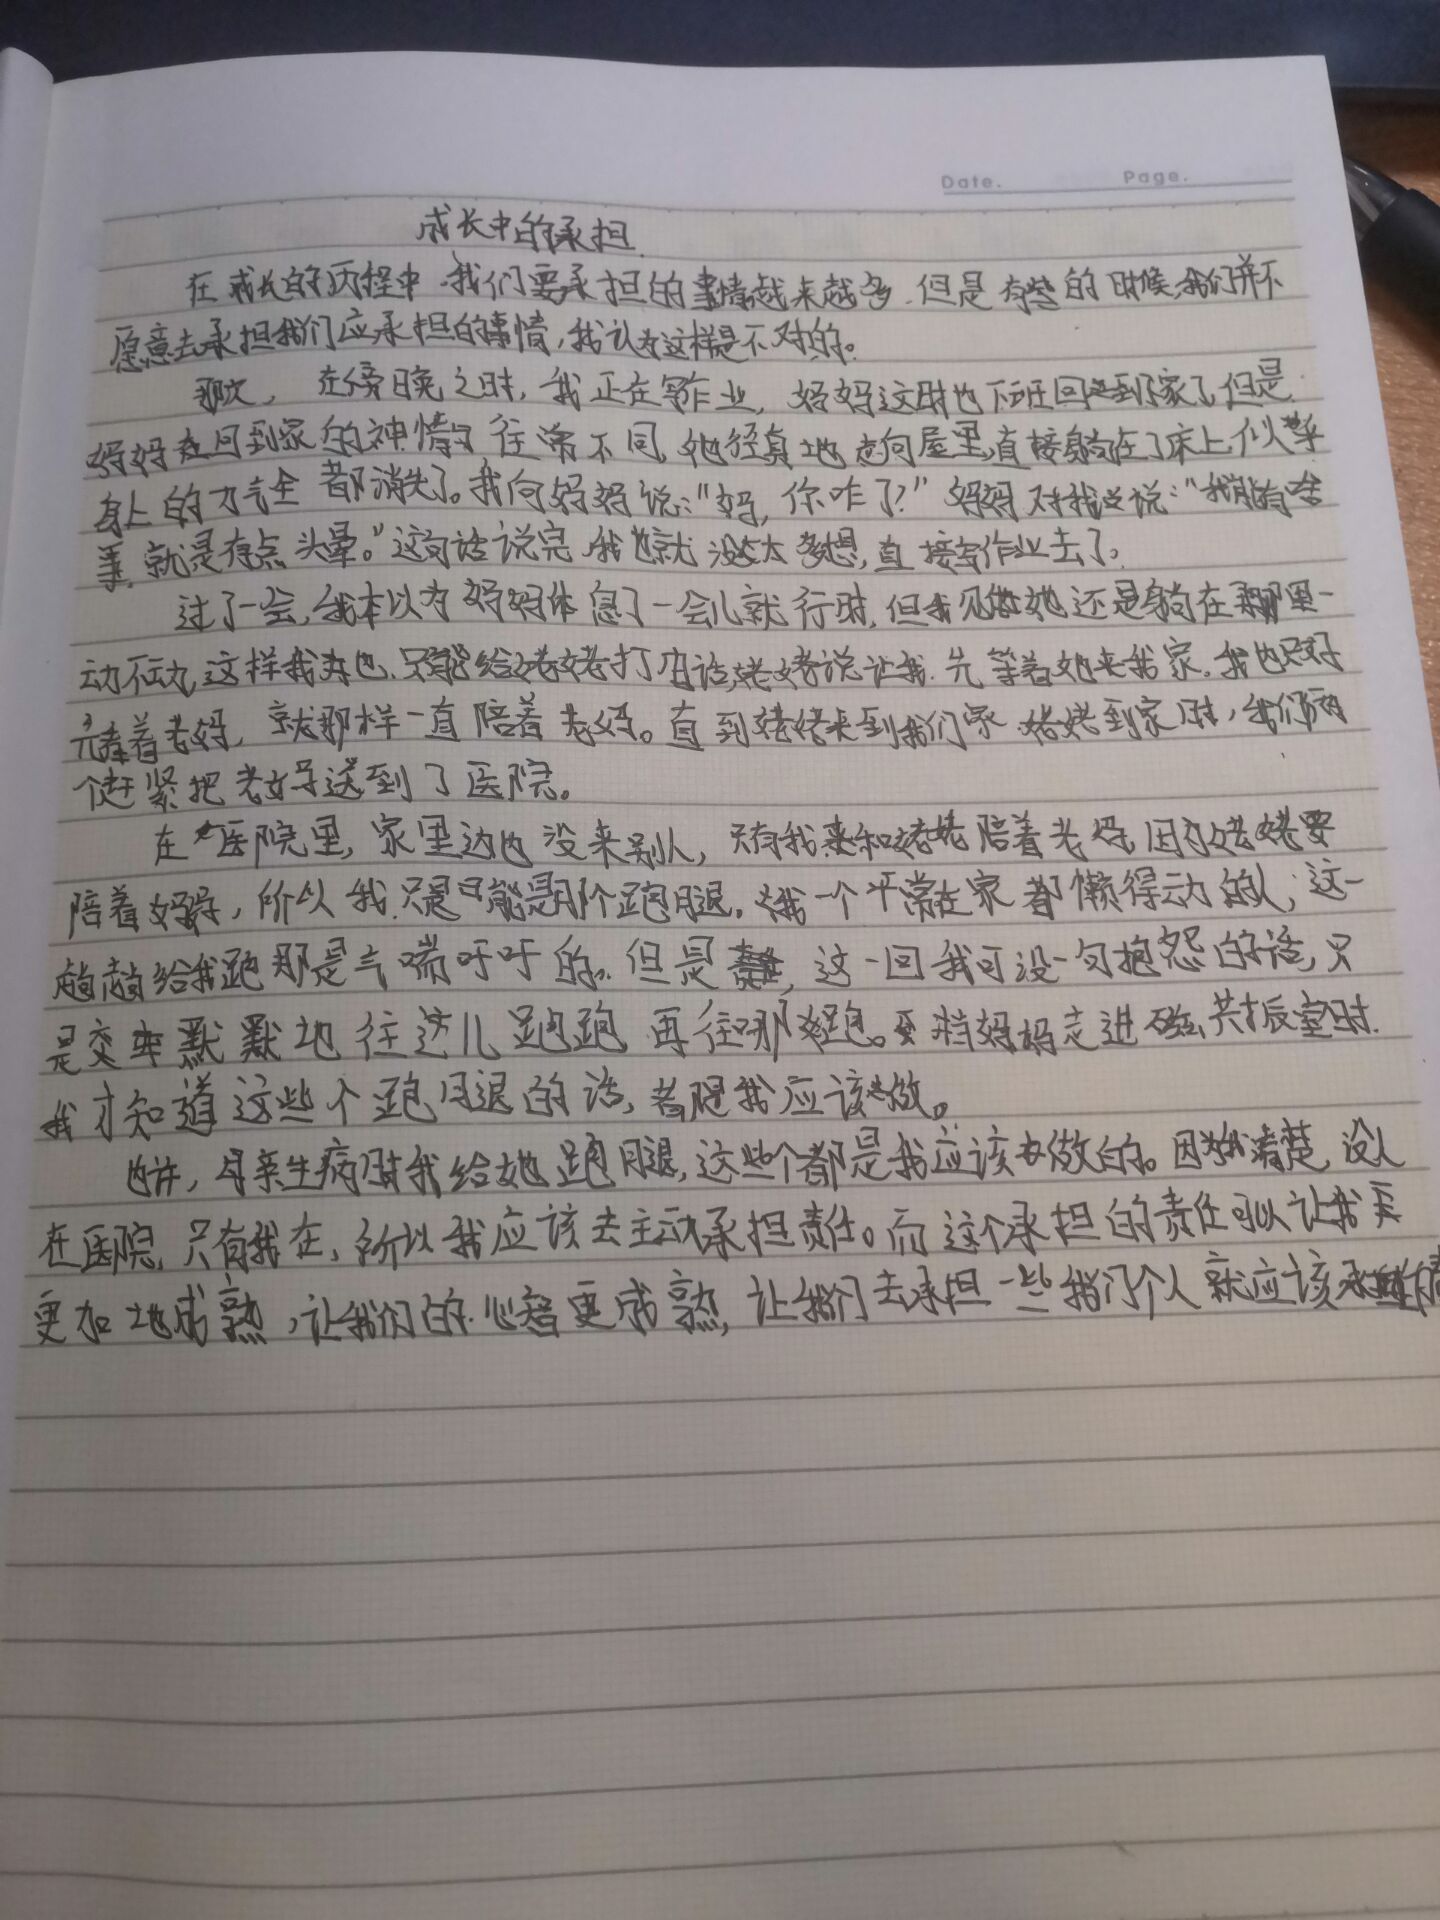 Date. Page.
成长中的承担
在成长的历程中,我们要承担的事情越来越多.但是有些的时候,我们并不
愿意去承担我们应承担的事情,我认为这样是不对的。
那次,在傍晚之时,我正在写作业,妈妈这时也下班回到家了,但是
妈妈回到家的神情与往常不同,她径直地走向屋里,直接躺在了床上,似乎
身上的力气全都消失了。我向妈妈说:"妈,你咋了?"妈妈对我说:"我能有啥
事,就是有点头晕。"这句话说完,我也就没太多想,直接写作业去了。
过了一会,我本以为妈妈休息了一会儿就行时,但我见她还是躺在那里一
动不动,这样我也只能给姥姥打电话,姥姥说让我先等着她来我家.我也只好
先陪着老妈,就那样一直陪着老妈。直到姥姥来到我们家.姥姥到家时,我们两
个赶紧把老妈送到了医院。
在医院里,家里边也没来别人,只有我和姥姥陪着老妈,因为姥姥要
陪着妈妈,所以我只能是那个跑腿.我一个平常在家都懒得动的人,这一
趟趟给我跑那是气喘吁吁的.但是,这一回我可没一句抱怨的话,只
是默默地往这儿跑跑再往那跑跑。当妈妈走进磁共振室时.
我才知道这些个跑腿的活,都是我应该做。
也许,母亲生病时我给她跑腿,这些个都是我应该做的。因为我清楚,没人
在医院,只有我在,所以我应该去主动承担责任。而这个承担的责任可以让我
更加地成熟,让我们的心智更成熟,让我们去承担一些我们个人就应该承担的